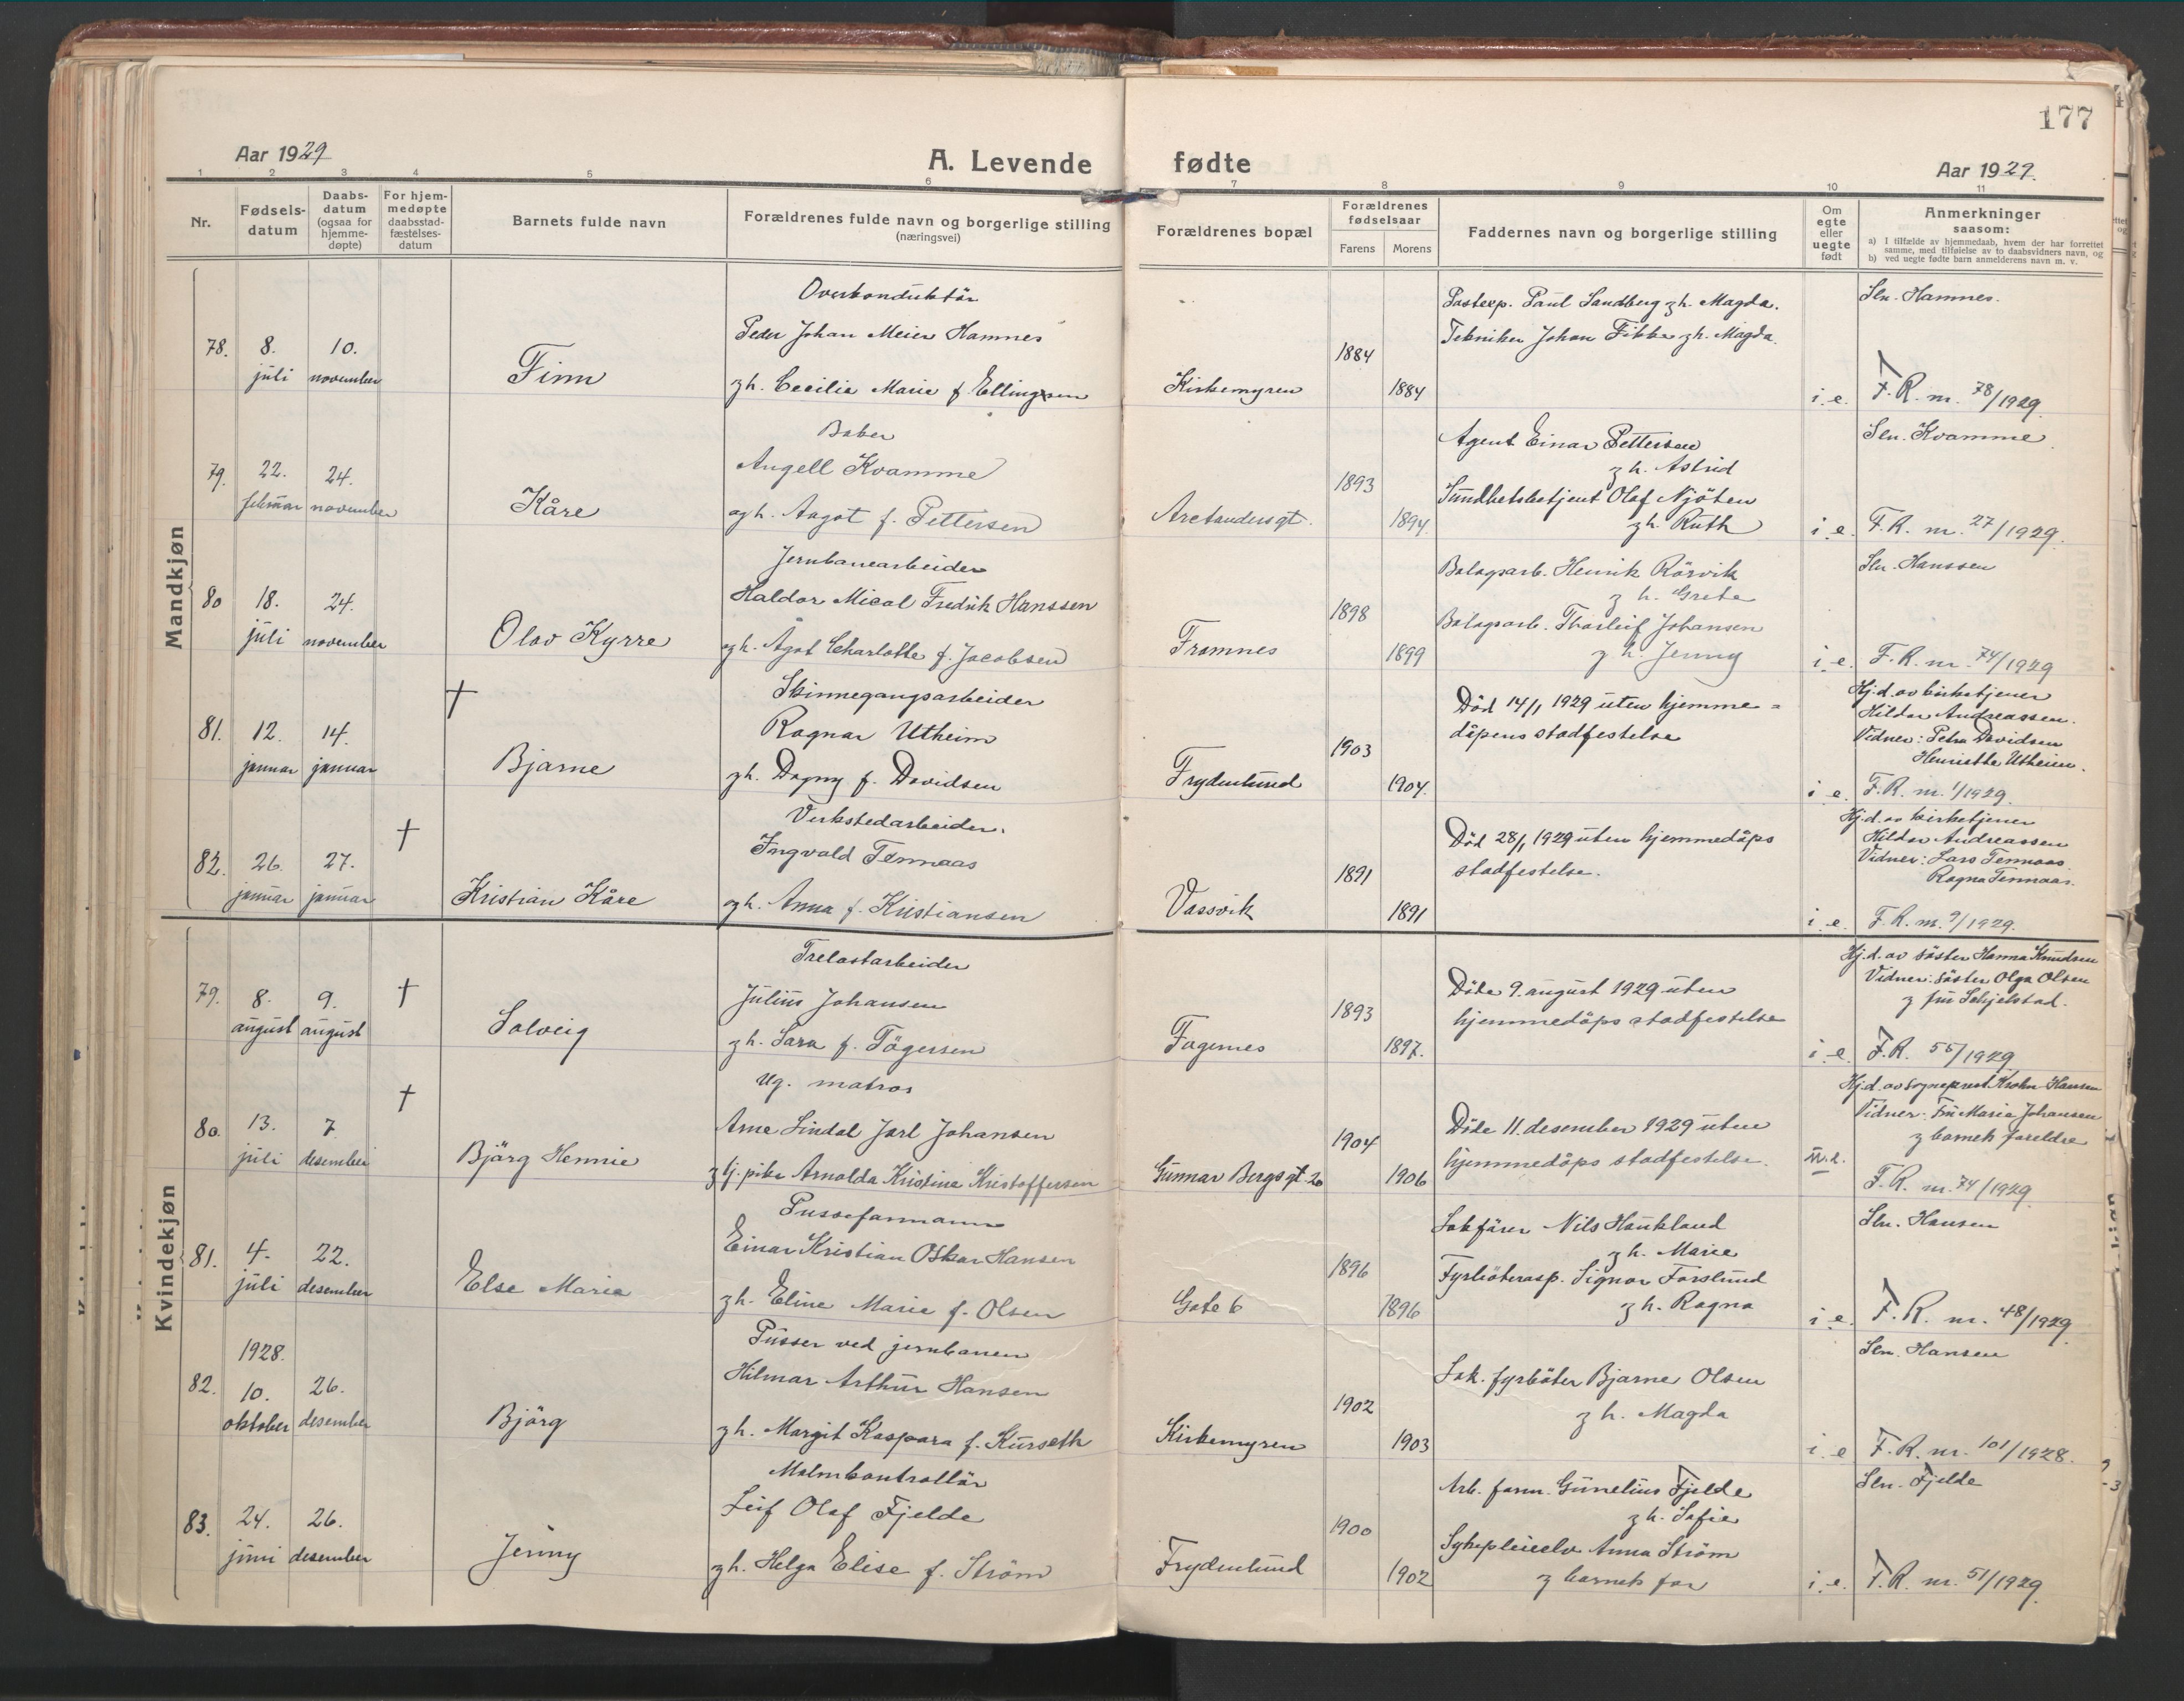 177
Aar 1929
A. Levende fødte
Aar 1929.
1 2 3 4 5 6 7 8 9 10 11
Nr.
Fødsels-
datum
Daabs-
datum
(ogsaa for
hjemme-
døpte)
For hjem-
medøpte
daabsstad-
fæstelses-
datum
Barnets fulde navn
Forældrenes fulde navn og borgerlige stilling
(næringsvei)
Forældrenes bopæl
Forældrenes
fødselsaar
Farens Morens
Faddernes navn og borgerlige stilling
Om
egte
eller
uegte
født
Anmerkninger
saasom:
a) I tilfælde av hjemmedaab, hvem der har forrettet
samme, med tilføielse av to daabsvidners navn, og
b) ved uegte fødte barn anmelderens navn m. v.
Mandkjøn
78. 8. juli
10. november
Finn
Overkonduktör
Peder Johan Meier Hamnes
z h. Cecilie Marie f. Ellingsen
Kirkemyren
1884
1884
Postexp. Paul Sandberg z h. Magda.
Tekniker Johan Fikke z h. Magda.
i. e.
Sln. Hamnes.
F. R. nr. 78/1929.
79. 22. februar
24. november
Kåre
Baker
Angell Kvamme
og h. Aagot f. Pettersen
Aretandersgt.
1893
1894.
Agent Einar Pettersen
z h. Astrid
Sundhetsbetjent Olaf Njöten
z h. Ruth
i. e.
Sln. Kvamme.
F. R. nr. 27/1929.
80 18. juli
24. november
Olav Kyrre
Jernbanearbeider
Haldor Micał Fredrik Hanssen
og h. Ågot Charlotte f. Jacobsen
Framnes
1898
1899
Bolagsarb. Henrik Rörvik
z h. Grete
Bolagsarb. Thorleif Johansen
z h. Jenny
i. e.
Sln. Hanssen
F. R. nr. 74/1929
81. 12. januar
14. januar
†
Bjarne
Skinnegangsarbeider
Ragnar Utheim
z h. Dagny f. Davidsen
Frydenlund
1903
1904.
Död 14/1 1929 uten hjemme=
dåpens stadfestelse
i e.
Hj. d. av kirketjener
Hildor Andreassen.
Vidner: Petra Davidsen
Henriette Utheim.
F. R. nr. 1/1929.
82. 26. januar
27. januar
†
Kristian Kåre
Verkstedarbeider.
Ingvald Tennaas
og h. Anna f. Kristiansen
Vassvik
1891
1891
Död 28/1 1929 uten hjemmedåps
stadfestelse.
i e.
Hj. d. av kirketjener
Hildor Andreassen
Vidner: Lars Tennaas
Ragna Tennaas.
F. R. nr. 9/1929.
Kvindekjøn
79. 8. august
9. august
†
Solveig
Trelastarbeider
Julius Johansen
z h. Sara f. Tögersen
Fagernes
1893
1897.
Döde 9. august 1929 uten
hjemmedåps stadfestelse
i. e.
Hj. d. av söster Hanna Knudsen
Vidner: söster Olga Olsen
z fru Schjelstad.
F. R. 55/1929
80. 13. juli
7. desember
†
Bjärg Hennie
ug. matros
Arne Lindal Jarl Johansen
z tj. pike Arnolda Kristine Kristoffersen
Gunnar Bergs gt. 26
1904
1906
Döde 11. desember 1929 uten
hjemmedåps stadfestelse.
u. e.
Hj. d. av sogneprest Krohn-Hansen
Vidner: Fru Marie Johansen
z barnets foreldre
F. R. nr. 74/1929
81. 4. juli
22. desember
Else Marie
Pusseformann
Einar Kristian Oskar Hansen
z h. Eline Marie f. Olsen
Gate 6
1896
1896
Lokförer Nils Haukland
z h. Marie
Fyrböterasp. Signor Forslund
z h. Ragna
i e.
Sln. Hansen
F. R. nr. 48/1929
82. 1928.
10. oktober
26. desember
Björg
Pusser ved jernbanen
Hilmar Arthur Hansen
z h. Margit Kaspara f. Kurseth
Kirkemyren
1902
1903
Lok. fyrböter Bjarne Olsen
z h. Magda
i e
Sln. Hansen
F. R. nr. 101/1928.
83. 24. juni
26. desember
Jenny
Malmkontrollör
Leif Olaf Fjelde
z h. Helga Elise f. Ström
Frydenlund
1900
1902
Arb. form. Gunelius Fjelde
z h. Sofie
Sykepleieelev Anna Ström
z barnets far
i e.
Sln. Fjelde
F. R. nr. 51/1929.